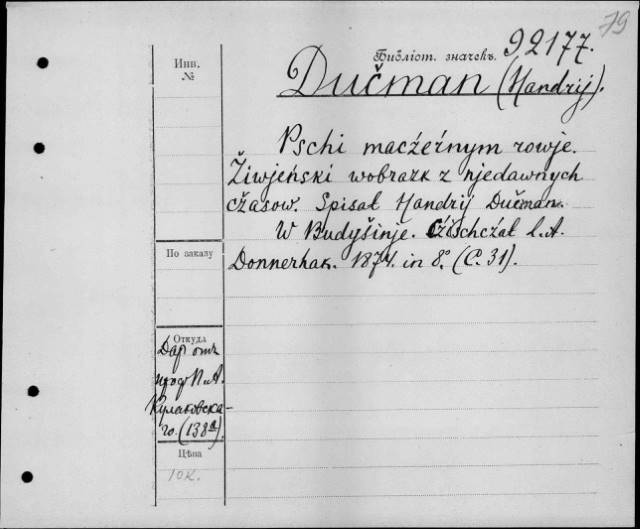 79
Библіот. значекъ. 92177.
Инв. №
Dučman (Handrij).
Pschi maczeŕnym rowje.
Žiwjeński wobrazk z njedawnych
čžasow. Spisał Handrij Dučman.
W Budyšinje. Čžischczał L. A.
По заказу
Donnerhak. 1874. in 8.° (C. 31).
Откуда
Дар отъ
проф. П. А.
Кулаковска-
го. (138а).
Цѣна
10 к.